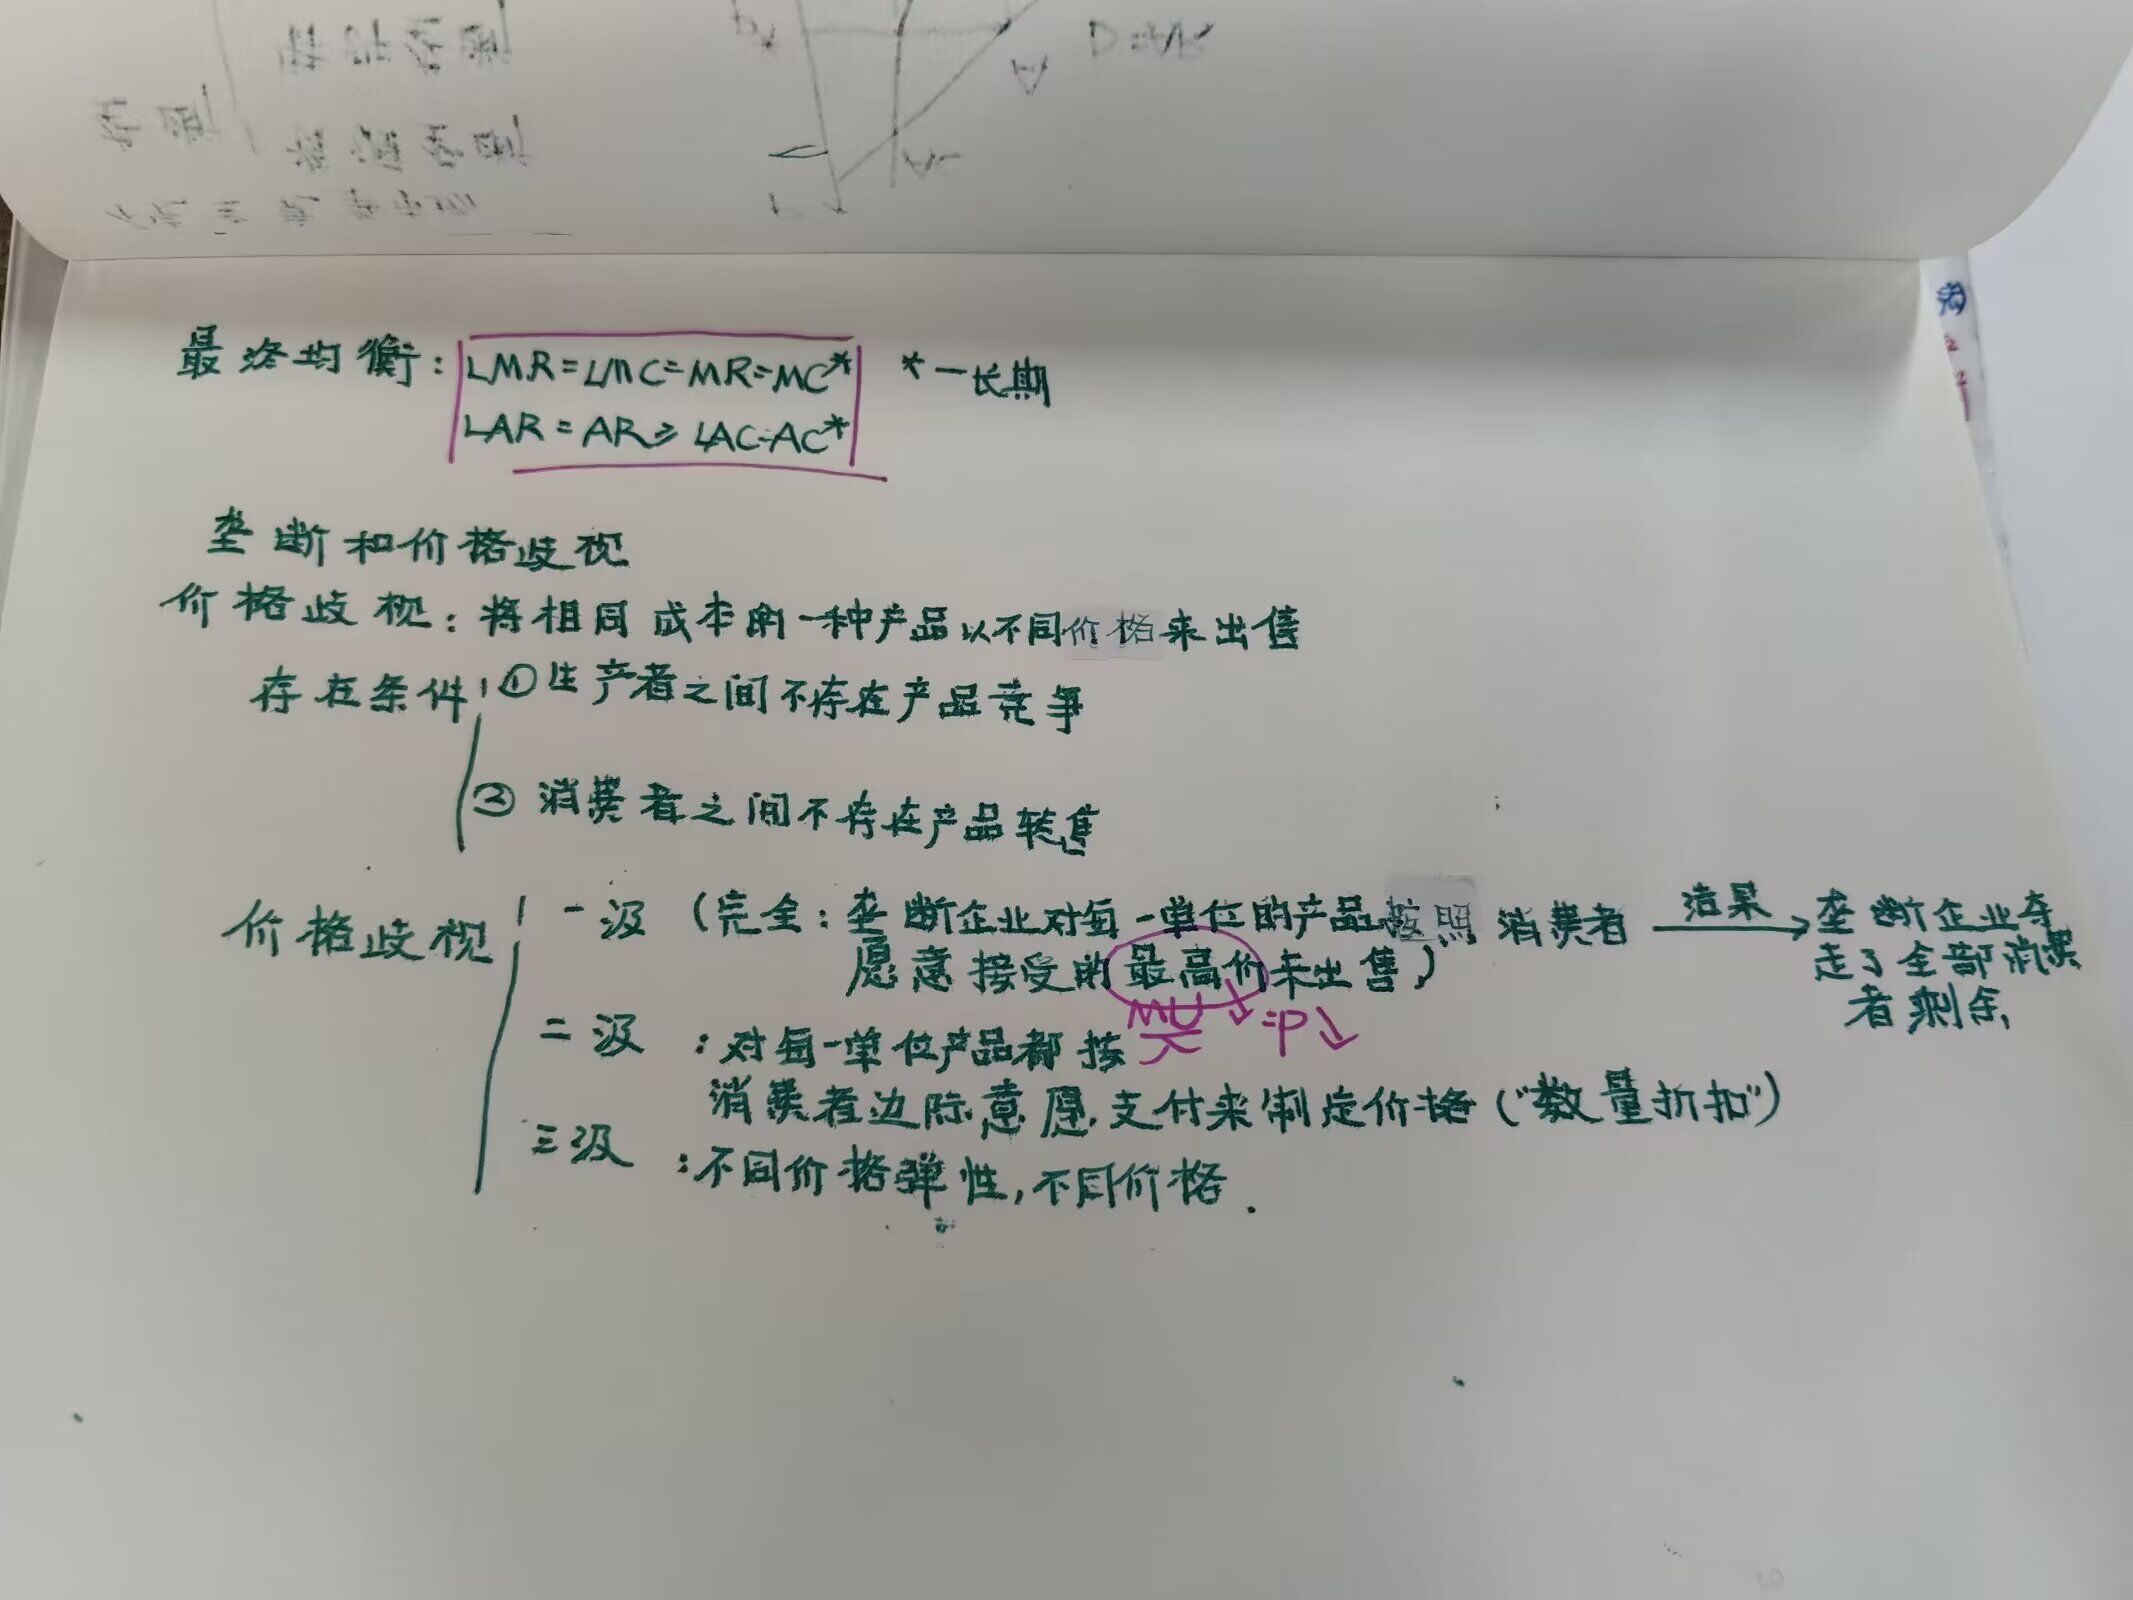 D=AR
最终均衡: LMR=LMC=MR=MC* *一长期
LAR=AR≥LAC=AC*
垄断和价格歧视
价格歧视:将相同成本的一种产品以不同价格来出售
存在条件 ①生产者之间不存在产品竞争
②消费者之间不存在产品转售
价格歧视 一级 (完全:垄断企业对每一单位的产品按照消费者 结果→ 垄断企业夺
愿意接受的最高价来出售) 走了全部消费
者剩余,
MU↘/λ=P↘
二级 :对每一单位产品都按
消费者边际意愿支付来制定价格("数量折扣")
三级 :不同价格弹性,不同价格.